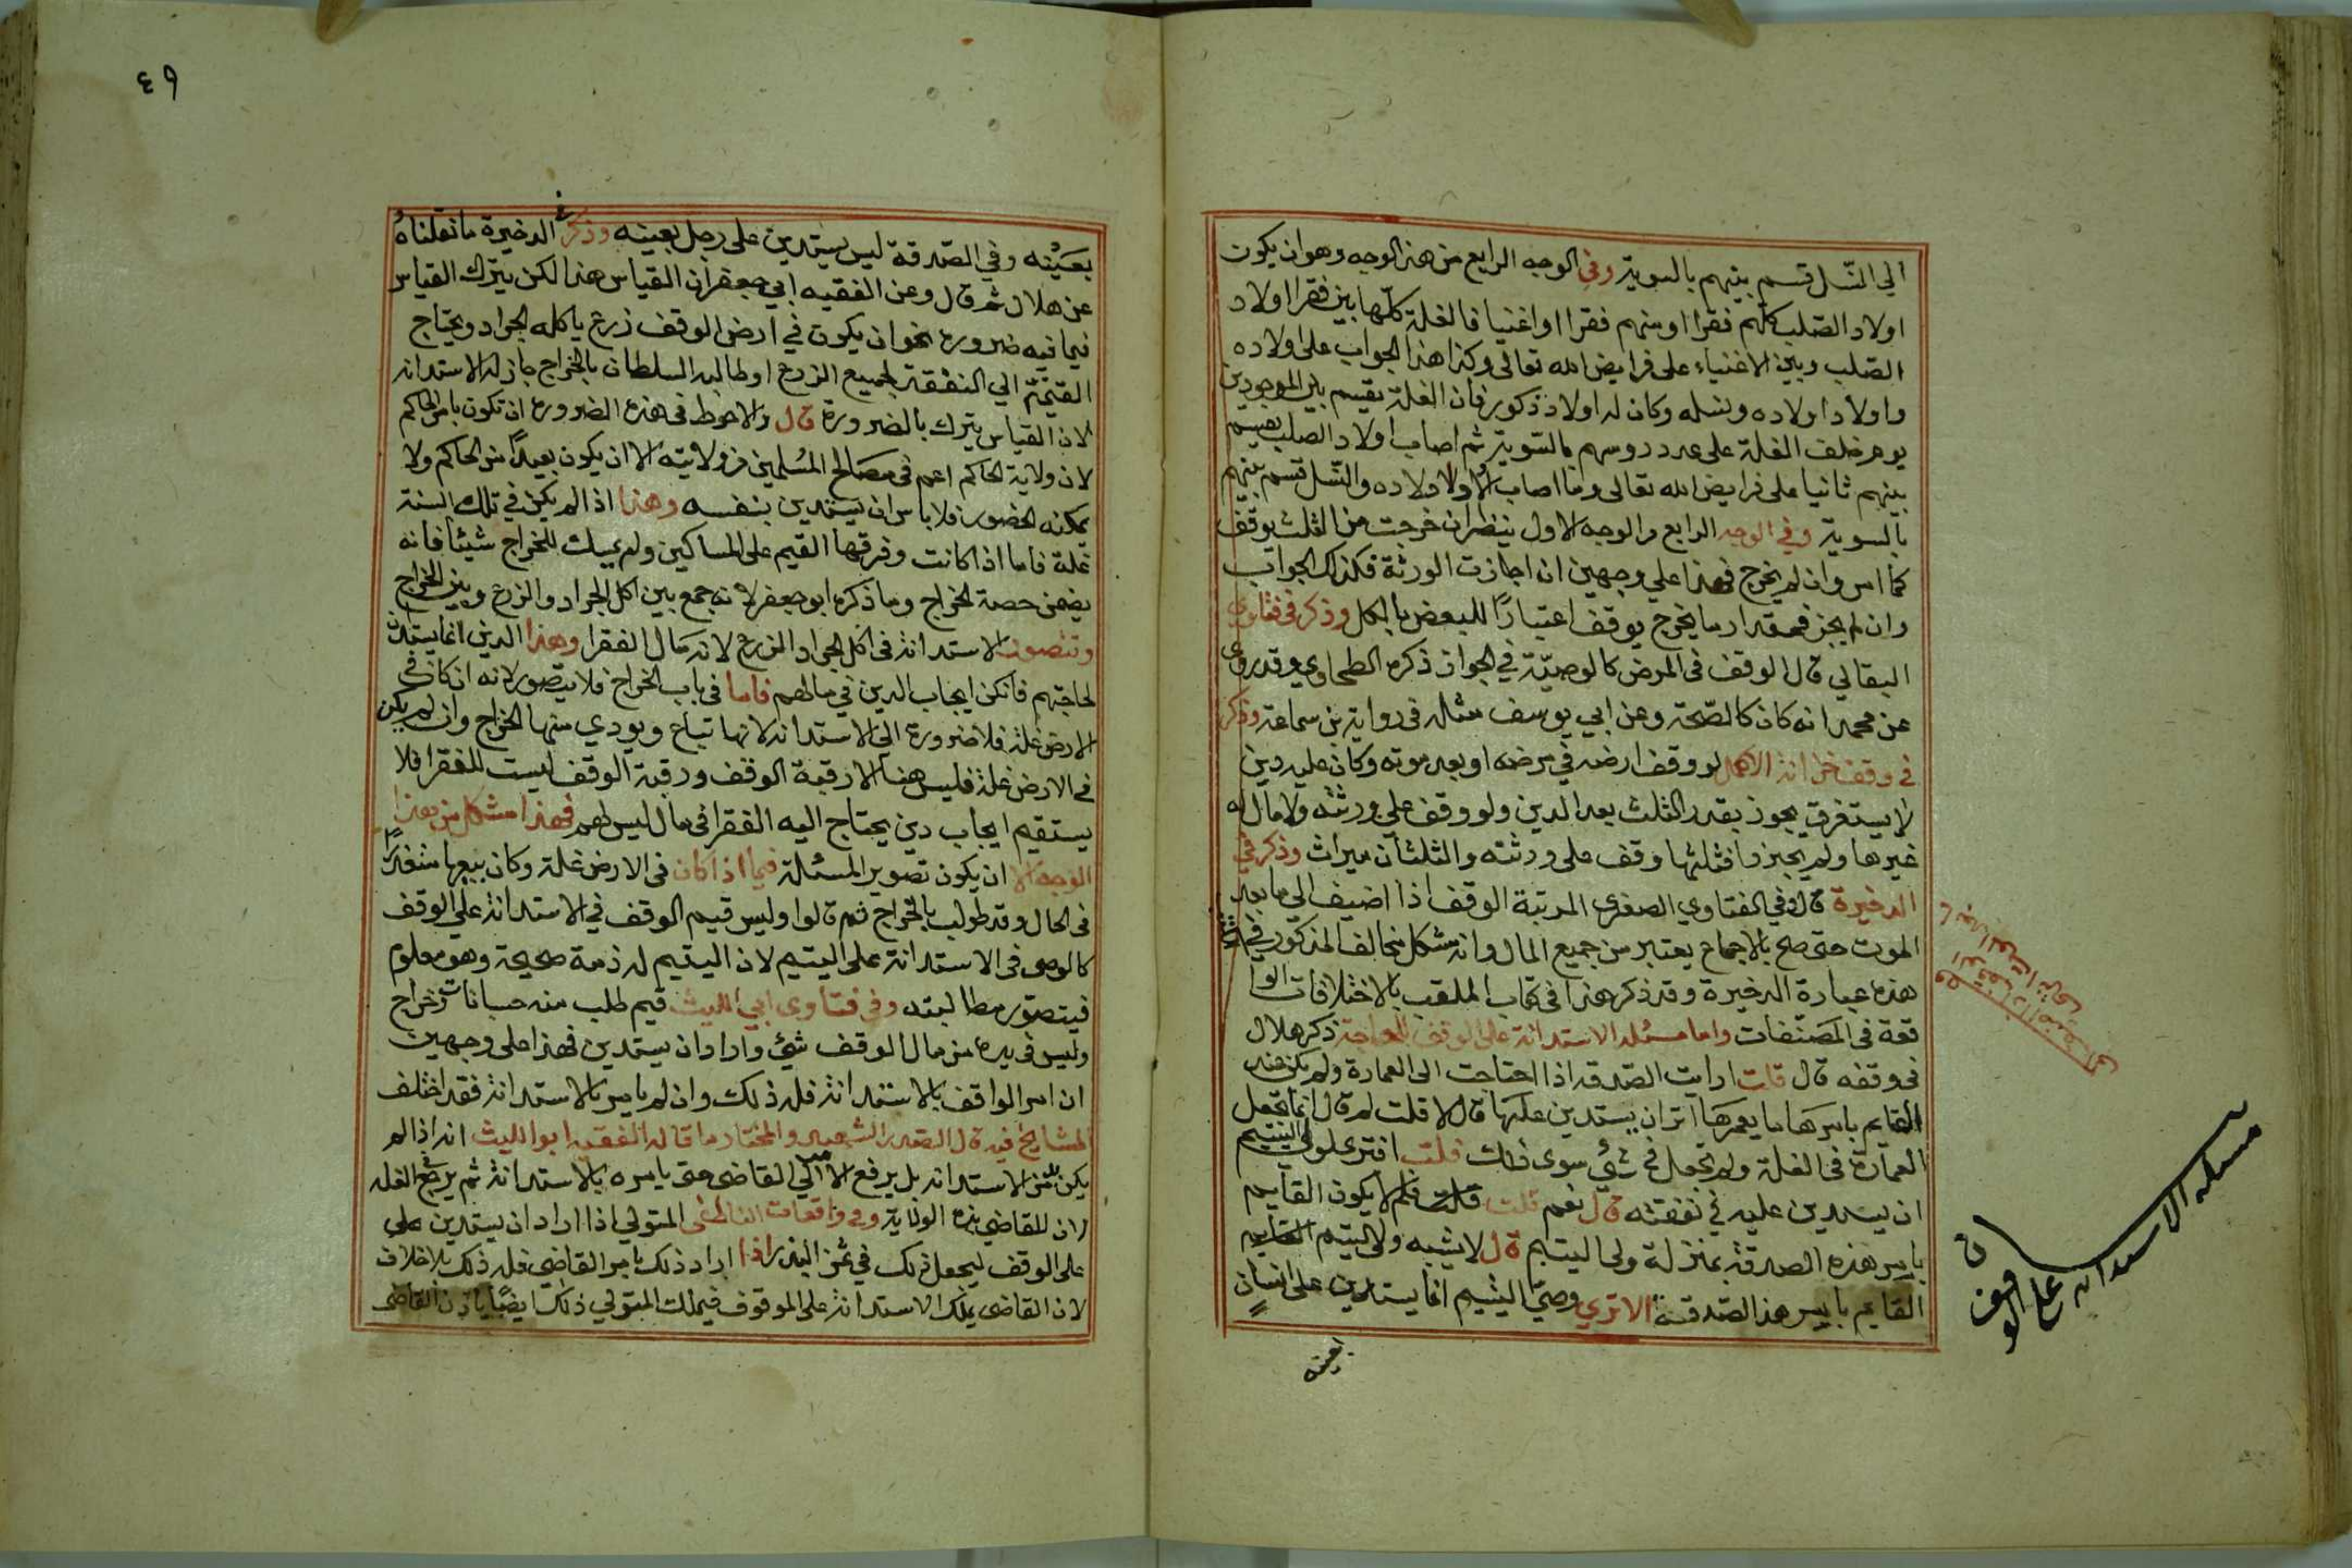 الي النسل قسم بينهم بالسوية وفي الوجه الرابع من هذا الوجه وهو ان يكون
اولاد الصلب كلهم فقرا او منهم فقرا او اغنيا فالغلة كلها بين فقرا اولاد
الصلب وبين الاغنياء على فرايض الله تعالى وكذا هذا الجواب على اولاده
واولاد اولاده ونسله وكان له اولاد ذكور فان الغلة يقسم بين الموجودين
يوم خلف الغلة على عدد روسهم بالسوية ثم اصاب اولاد الصلب يقسم
بينهم ثانيا على فرايض الله تعالى وما اصاب اولاد اولاده والنسل قسم بينهم
بالسوية وفي الوجه الرابع والوجه الاول ينظر ان خرجت من الثلث يوقف
كما امر وان لم يخرج فهذا علي وجهين ان اجازت الورثة فكذلك الجواب
وان لم يجز فمقدار ما يخرج يوقف اعتبارًا للبعض بالكل وذكر في فتاوى
البقالي قال الوقف في المرض كالوصيّة في الجواز ذكره الطحاوي وقد روى
عن محمد انه كان كالصّحة وعن ابي يوسف مثله في رواية بن سماعة وذكر
في وقف خزانة الاكمل لو وقف ارضه في مرضه او بعد موته وكان عليه دين
لا يستغرق يجوز بقدر الثلث بعد الدين ولو وقف علي ورثته ولا مال له
غيرها ولم يجيزوا فثلثها وقف على ورثته والثلثان ميراث وذكر في
الدخيرة قال وفي الفتاوي الصغرى المرتبة الوقف اذا اضيف الى ما بعد
الموت حتى صح بالاجماع يعتبر من جميع المال وانه مشكل مخالف المذكور في
هذه عبارة الدخيرة وقد ذكر هذا في كتاب الملقب بالاختلافات الوا
قعة في المصنّفات واما مسئلة الاستدانة على الوقف للحاجة ذكر هلال
في وقفه قال قلت ارايت الصّدقة اذا احتاجت الى العمارة ولم يكن عند
القايم بامرها ما يعمرها اترى ان يستدين عليها قال لا قلت لم قال انما تجعل
العمارة في الغلة ولم يجعل في شيء سوى ذلك قلت افترى لولي اليتيم
ان يستدين عليه في نفقته قال نعم قلت فلم لا يكون القايم
بامر هذه الصدقة بمنزلة ولى اليتيم قال لا يشبه ولي اليتيم القايم
القايم بامر هذا الصّدقة الا ترى وصيّ اليتيم انما يستدين على انسان
بعينه
مسئلة الاستدانة على الوقف
٤٩
بعينه وفي الصّدقة ليس يستدين على رجل بعينه وذكر في الدخيرة ما نقلناه
عن هلال ثم قال وعن الفقيه ابي جعفر ان القياس هذا لكن يترك القياس
فيما فيه ضرورة نحو ان يكون في ارض الوقف زرع ياكله الجراد ويحتاج
القيّم الي النفقة لجميع الزرع او طالبه السلطان بالخراج جاز له الاستدانة
لان القياس يترك بالضرورة قال والاحوط في هذه الضرورة ان تكون بامر الحاكم
لان ولاية الحاكم اعم في مصالح المسلمين من ولايته الا ان يكون بعيدًا من الحاكم ولا
يمكنه الحضور فلا باس ان يستدين بنفسه وهذا اذا لم يكن في تلك السنة
غلة فاما اذا كانت وفرقها القيم على المساكين ولم يمسك للخراج شيئًا فانه
يضمن حصة الخراج وما ذكره ابو جعفر لانه جمع بين اكل الجراد والزرع وبين الخراج
وتتصور الاستدانة في اكل الجراد الزرع لانه مال الفقرا وهذا الدين انما يستدان
لحاجتهم فامكن ايجاب الدين في مالهم فاما في باب الخراج فلا يتصور لانه ان كان في
الارض غلة فلا ضرورة الي الاستدانة لانها تباع ويودي منها الخراج وان لم يكن
في الارض غلة فليس هنا الا رقبة الوقف ورقبة الوقف ليست للفقرا فلا
يستقيم ايجاب دين يحتاج اليه الفقرا في مال ليس لهم فهذا مشكل من هذا
الوجه الا ان يكون تصوير المسئلة فيما اذا كان في الارض غلة وكان بيعها متعذرًا
في الحال وقد طولب بالخراج ثم قالوا وليس قيم الوقف في الاستدانة علي الوقف
كالوصى في الاستدانة على اليتيم لان اليتيم له ذمة صحيحة وهو معلوم
فيتصوّر مطالبته وفي فتاوى ابي الليث قيم طلب منه جبايات وخراج
وليس في يده من مال الوقف شيء واراد ان يستدين فهذا على وجهين
ان امر الواقف بالاستدانة فله ذلك وان لم يامر بالاستدانة فقد اختلف
المشايخ فيه قال الصدر الشهيد والمختار ما قاله الفقيه ابو الليث انه اذا لم
يكن من الاستدانة بد يرفع الامر الي القاضى حتى يامره بالاستدانة ثم يرجع في الغلة
لان للقاضي هذه الولاية وفي واقعات الناطفى المتولي اذا اراد ان يستدين على
على الوقف ليجعل ذلك في ثمن البذر اذا اراد ذلك بامر القاضي فله ذلك بلا خلاف
لان القاضى يملك الاستدانة على الموقوف فيملك المتولي ذلك ايضًا باذن القاضى